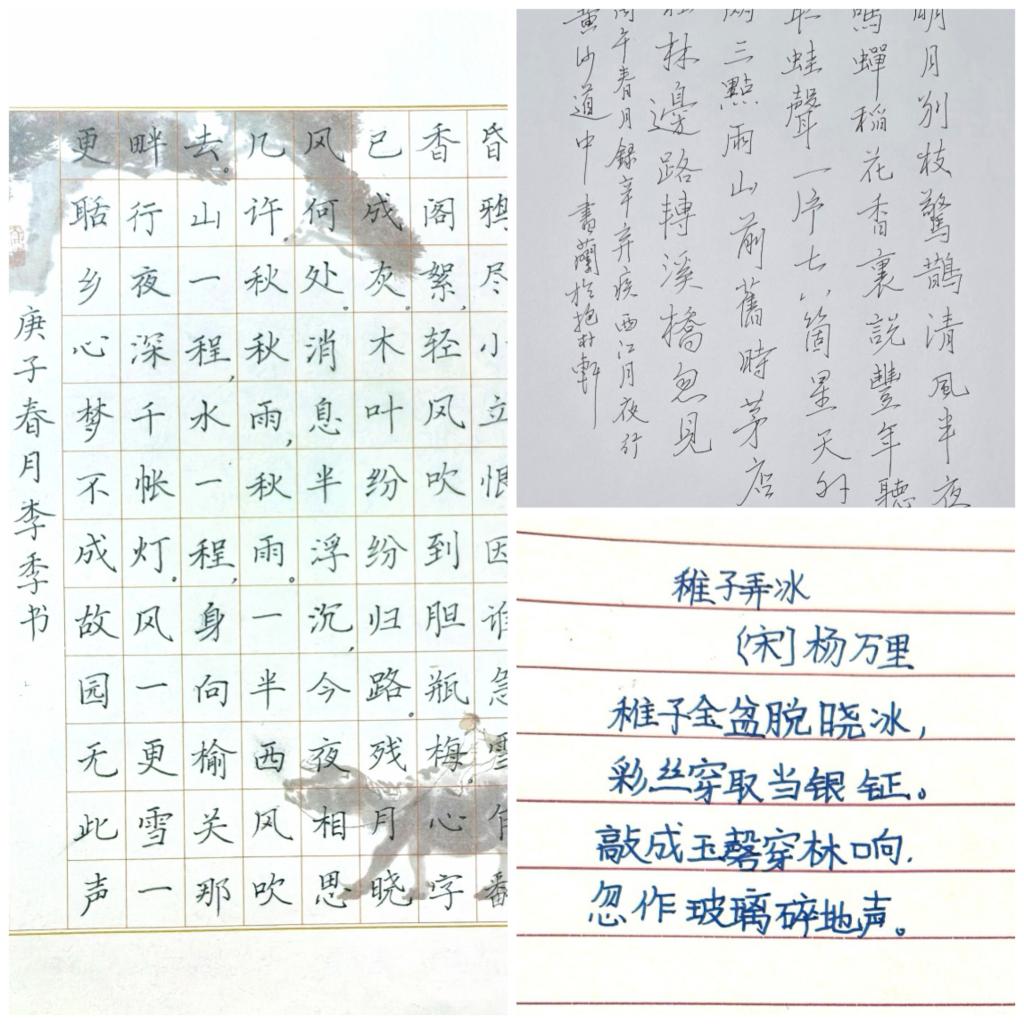 昏鸦尽小立恨因谁急雪乍翻
香阁絮,轻风吹到胆瓶梅。心字
已成灰。木叶纷纷归路。残月晓
风何处。消息半浮沉,今夜相思
几许。秋秋雨,秋雨。一半西风吹
去。山一程,水一程,身向榆关那
畔行夜深千帐灯。风一更雪一
更聒乡心梦不成故园无此声
庚子春月李季书
明月别枝驚鵲清風半夜
鳴蟬稲花香裏説豐年聽
取蛙聲一片七八箇星天外
兩三點雨山前舊時茅店
社林邊路轉溪橋忽見
丙午春月録辛弃疾西江月夜行
黄沙道中 書蘭於抱朴軒
稚子弄冰
(宋]杨万里
稚子金盆脱晓冰,
彩丝穿取当银钲。
敲成玉磬穿林响.
忽作玻璃碎地声。